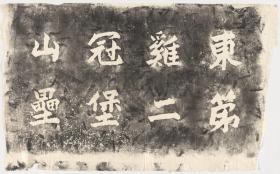 東第
雞二
冠堡
山壘